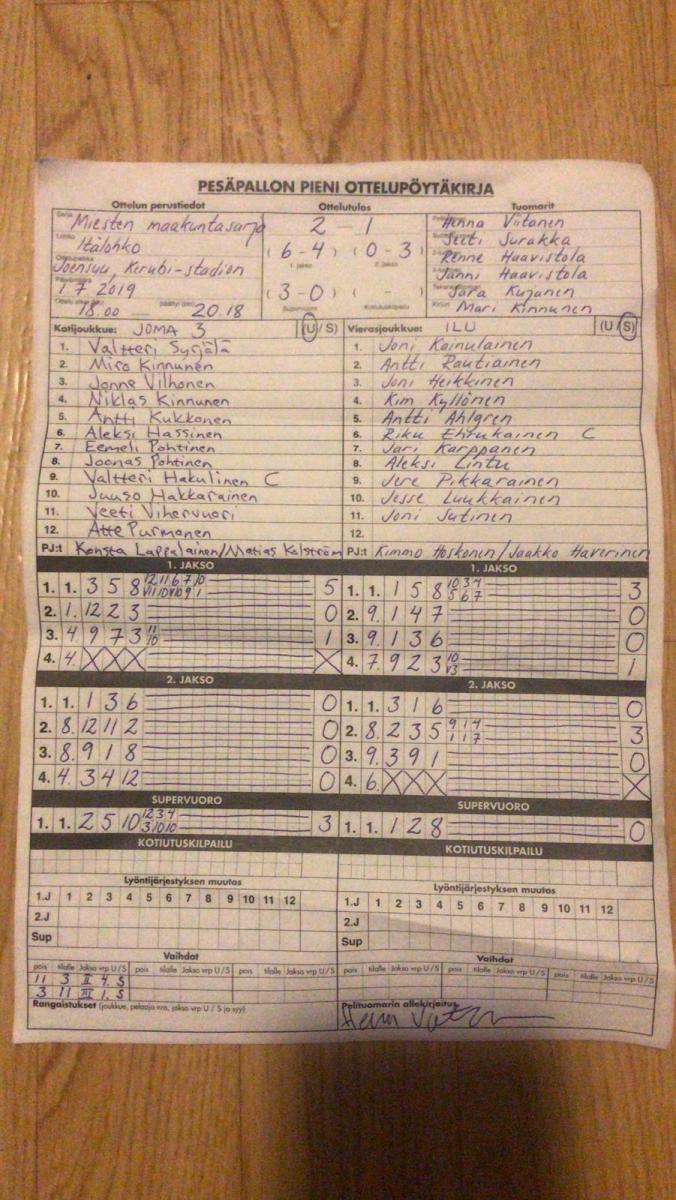 PESÄPALLON PIENI OTTELUPÖYTÄKIRJA
Ottelun perustiedot Ottelutulos Tuomarit
Miesten maakuntasarja 2 - 1 Henna Viitanen
Itälohko (6-4) (0-3) Jeti Surakka
1. jakso 2. jakso Renne Haavistola
Joensuu, Kerubi-stadion Janni Haavistola
1 7 2019 (3-0) ( - ) Sara Kujanen
18.00 20.18 Supervuoro Kotiutuskilpailu Mari Kinnunen
Kotijoukkue: JOMA 3 (U/S) Vierasjoukkue: ILU (U/S)
1. Valtteri Syrjälä 1. Joni Kainulainen
2. Miro Kinnunen 2. Antti Rautiainen
3. Jonne Vilhonen 3. Joni Heikkinen
4. Niklas Kinnunen 4. Kim Kyllönen
5. Antti Kukkonen 5. Antti Ahlgren
6. Aleksi Hassinen 6. Riku Ehrukainen C
7. Eemeli Pohtinen 7. Jari Karppanen
8. Joonas Pohtinen 8. Aleksi Lintu
9. Valtteri Hakulinen C 9. Jere Pikkarainen
10. Juuso Hakkarainen 10. Jesse Luukkainen
11. Veeti Vihervuori 11. Joni Jutinen
12. Atte Purmonen 12.
PJ:t Konsta Lappalainen/Matias Kolström PJ:t Kimmo Hoskonen/Jaakko Haverinen
1. JAKSO 1. JAKSO
1. 1. 3 5 8 12 11 6 7 10 5 1. 1. 1 5 8 10 3 4 5 6 7 3
2. 1. 12 2 3 0 2. 9. 1 4 7 0
3. 4 9 7 3 11 10 1 3. 9. 1 3 6 0
4. 4. X X X X 4. 7. 9 2 3 10 V3 1
2. JAKSO 2. JAKSO
1. 1. 1 3 6 0 1. 1. 3 1 6 0
2. 8. 12 11 2 0 2. 8. 2 3 5 9 1 4 1 1 7 3
3. 8. 9 1 8 0 3. 9. 3 9 1 0
4. 4. 3 4 12 0 4. 6. X X X X
SUPERVUORO SUPERVUORO
1. 1. 2 5 10 12 3 4 3 10 10 3 1. 1. 1 2 8 0
KOTIUTUSKILPAILU KOTIUTUSKILPAILU
Lyöntijärjestyksen muutos Lyöntijärjestyksen muutos
1.J 1 2 3 4 5 6 7 8 9 10 11 12 1.J 1 2 3 4 5 6 7 8 9 10 11 12
2.J 2.J
Sup Sup
Vaihdot Vaihdot
pois tilalle Jakso vrp U/S pois tilalle Jakso vrp U/S pois tilalle Jakso vrp U/S pois tilalle Jakso vrp U/S pois tilalle Jakso vrp U/S pois tilalle Jakso vrp U/S
11 3 II 4. S
3 11 III 1. S
Rangaistukset (joukkue, pelaaja nro, jakso vrp U/S ja syy) Pelituomarin allekirjoitus